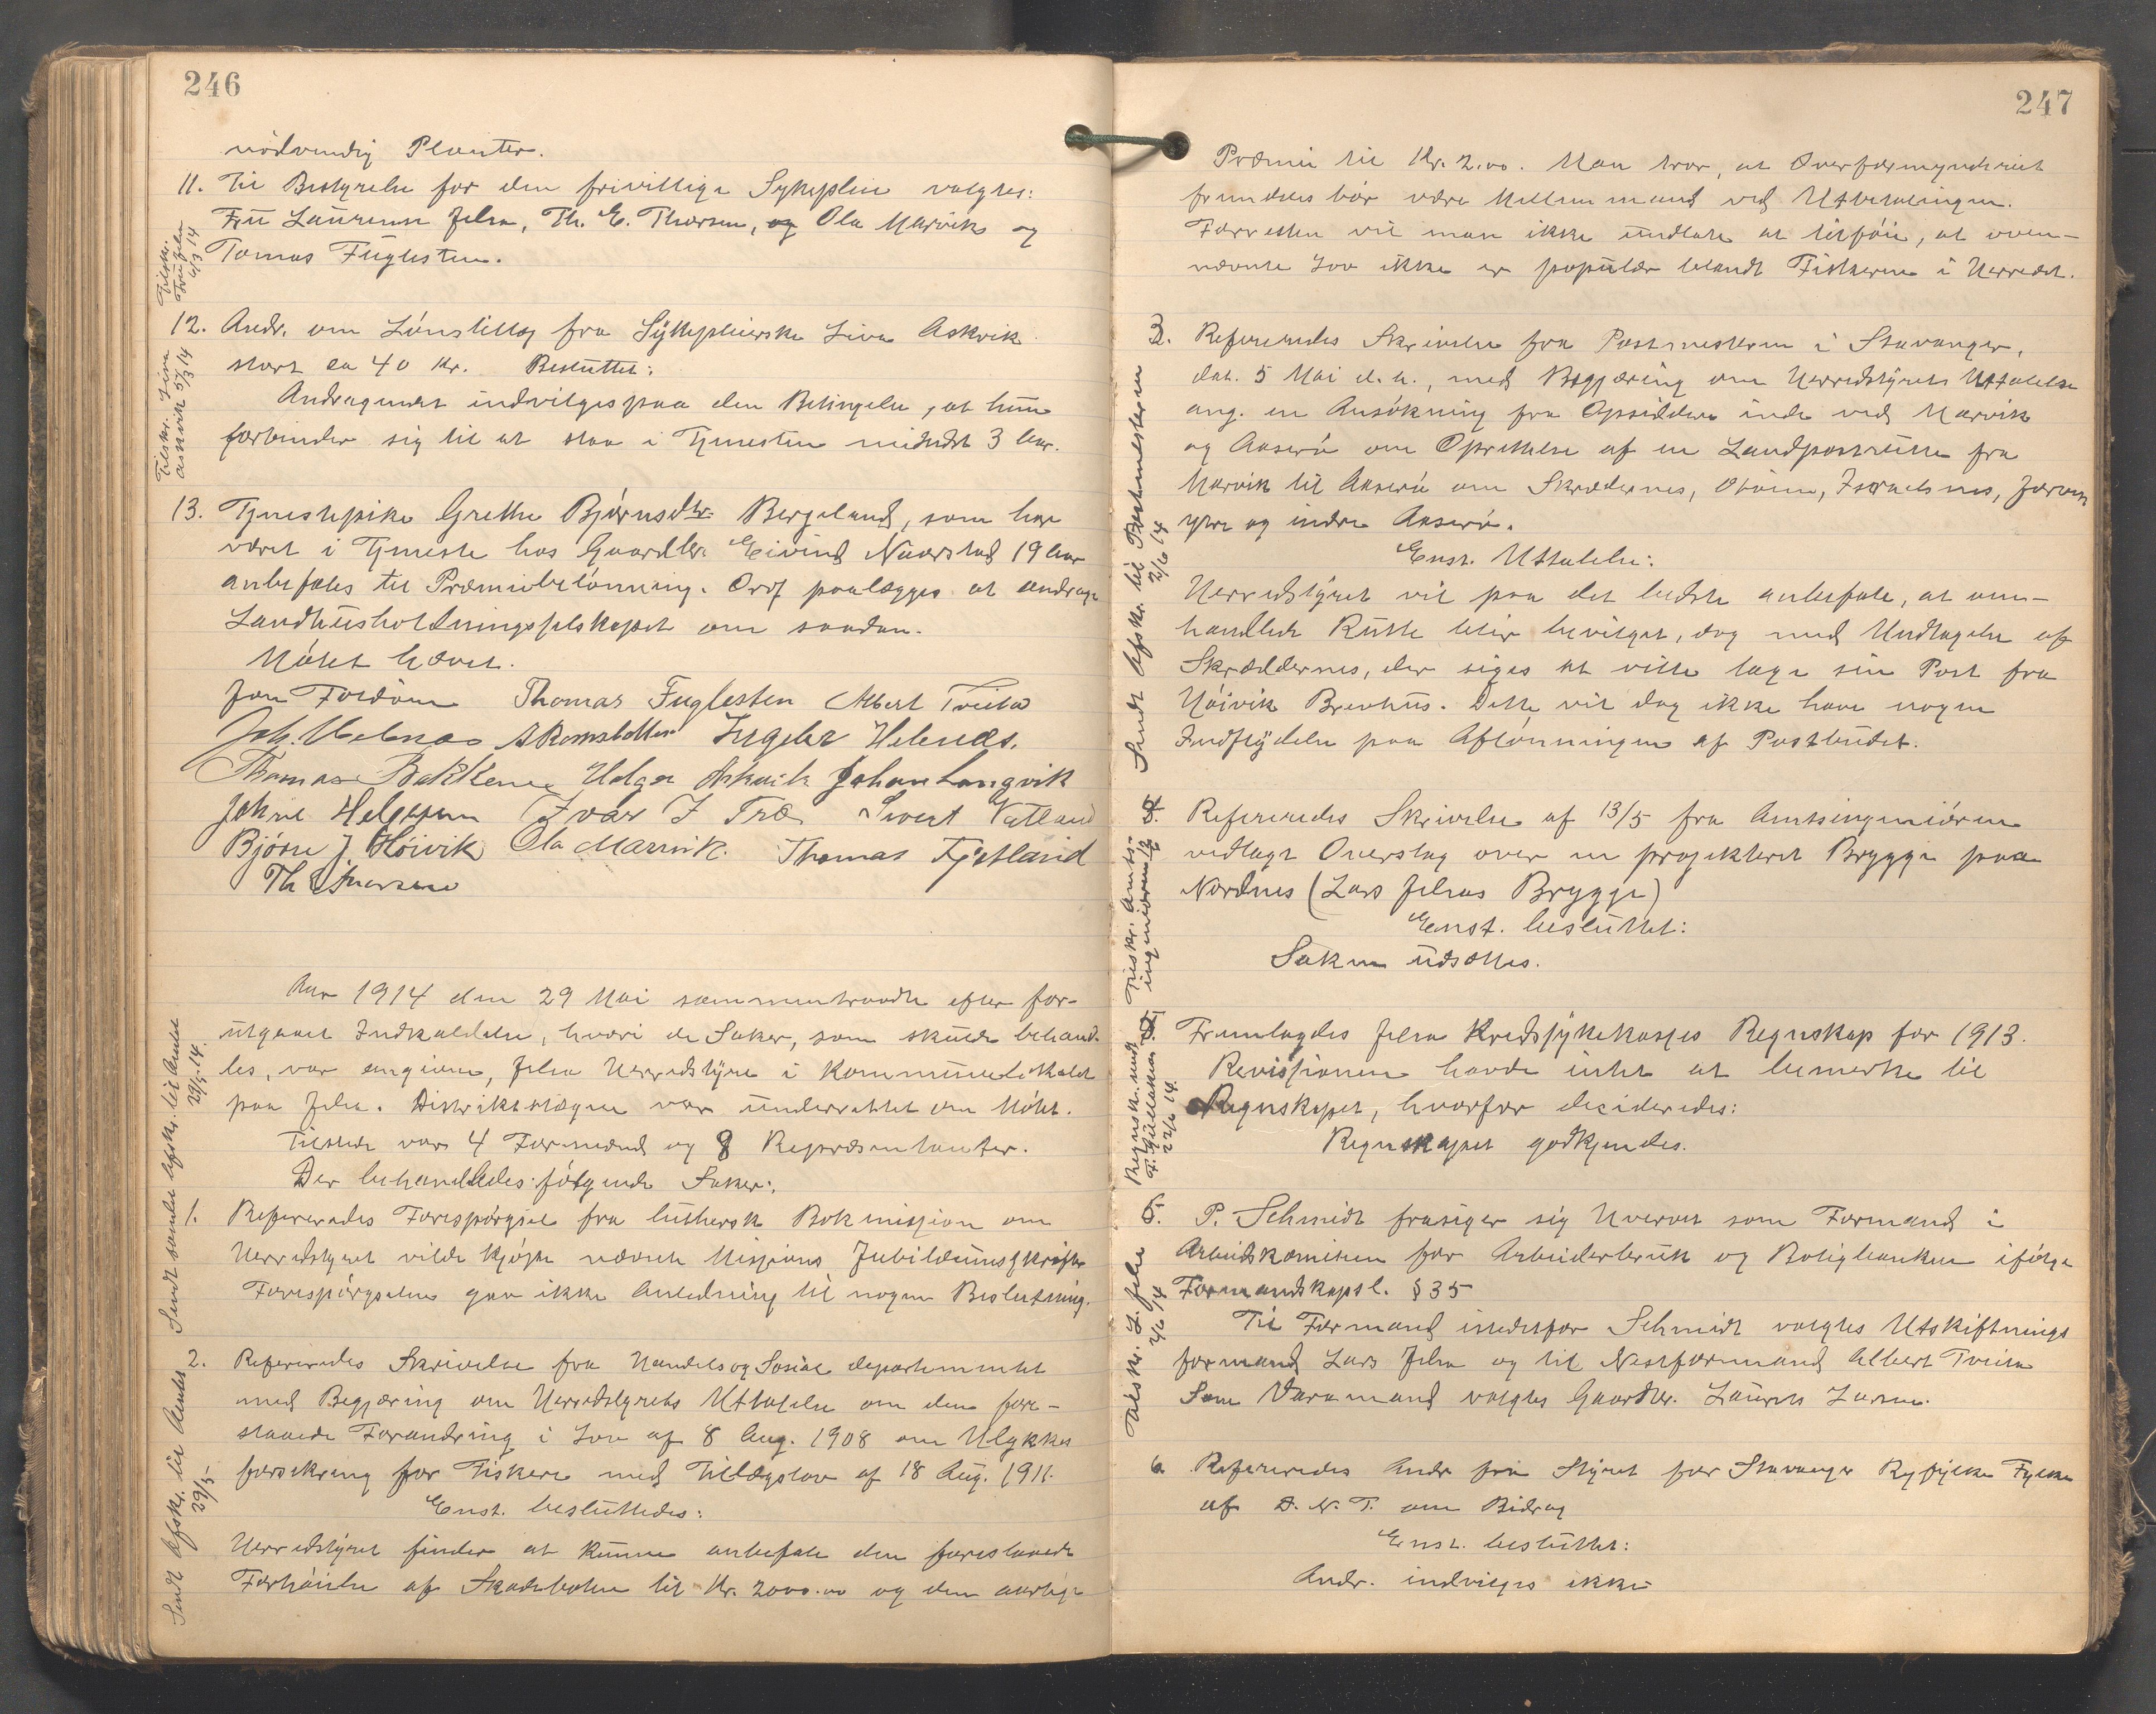 246
nödvendig Planter.
11. Til Bestyrelse for den frivillige Sykepleie valgtes:
Fru Laurense Jelsa, Th. E. Thorsen, og Ola Marvik og
Tomas Fuglesten.
Tilskr.
Fru Jelsa
4/3 14
12. Andr. om Lönstillæg fra Sykepleierske Siva Askvik
stort ca 40 Kr. Besluttet:
Andragendet indvilges paa den Betingelse, at hun
forbinder sig til at staa i Tjenesten mindst 3 Aar.
Tilskr. Siva
Askvik 5/3 14
13. Tjenestepike Grethe Björnsdtr. Bergeland, som har
været i Tjeneste hos Gaardbr. Eivind Naarstad 19 Aar
anbefales til Præmiebelönning. Ordf paalægges at andrage
Landhusholdningsselskapet om saadan.
Mötet hævet.
Jon Foldöen Thomas Fuglesten Albert Tveita
Joh. Helnæs A Ramsbotten Ingeb. Helenæs.
Thomas Bakken Helge Askvik Johan Langvik
Johne Helgesen Ivar I Træ Sivert Vatland
Björn J. Höivik Ola Marvik. Thomas Fjetland
Th E Thorsen
Aar 1914 den 29 Mai sammentraadte efter for-
utgaaet Indkaldelse, hvori de Saker, som skulde behand-
les, var angivne, Jelsa Herredstyre i Kommunelokalet
paa Jelsa. Distriktslægen var underrettet om Mötet.
Tilstede var 4 Formænd og 8 Repræsentanter.
Der behandledes fölgende Saker:
Sendt samlet Afskr. til Amtet
29/5 14.
1. Refereredes Forespörgsel fra luthersk Bokmission om
Herredstyret vilde kjöpe nævnte Missions Jubilæumsskrift
Forespörgselen gav ikke Anledning til nogen Beslutning.
2. Refereredes Skrivelse fra Handels og Sosial departementet
med Begjæring om Herredstyrets Uttalelse om den fore-
slaaede Forandring i Lov af 8 Aug. 1908 om Ulykkes
forsikring for Fiskere med Tillægslov af 18 Aug. 1911.
Enst. besluttedes:
Herredstyret finder at kunne anbefale den foreslaaede
Forhöielse af Skadeboten til Kr. 2000.00 og den aarlige
Sendt Afskr. til Amtet
29/5
247
Præmie til Kr. 2.00. Man tror, at Overformynderiet
fremdeles bör være Mellemmand ved Utbetalingen.
Forresten vil man ikke undlate at tilföie, at oven-
nævnte Lov ikke er populær blandt Fiskerne i Herredet.
3. Refereredes Skrivelse fra Postmesteren i Stavanger,
dat. 5 Mai d. a., med Begjæring om Herredstyrets Uttalelse
ang. en Ansökning fra Opsiddere inde ved Marvik
og Aaserö om Oprettelse af en Landpostrute fra
Marvik til Aaserö om Skrædernes, Otöien, Israelsnes,
ytre og indre Aaserö.
Enst. Uttalelse:
Herredstyret vil paa det bedste anbefale, at om-
handlede Rute blir bevilget, dog med Undtagelse af
Skræddernes, der siges at ville tage sin Post fra
Höivik Brevhus. Dette vil dog ikke have nogen
Indflydelse paa Aflönningen af Postbudet.
Sendt Afskr. til Postmesteren
2/6 14
4. Refereredes Skrivelse af 13/5 fra Amtsingeniören
vedlagt Overslag over en projekteret Brygge paa
Nordnes (Lars Jelsas Brygge)
Enst. besluttet:
Saken udsættes.
Tilskr. Amts-
ingeniören
Fremlagdes Jelsa Kredssykekasses Regnskap for 1913.
Revisjonen havde intet at bemerke til
Regnskapet, hvorfor decideredes:
Regnskapet godkjendes.
Regnsk. sendt
22/6 14.
5. P. Schmidt frasiger sig Hvervet som Formand i
Arbeidskomiteen for Arbeiderbruk og Boligbanken ifölge
Formandskapsl. § 35
Til Formand istedetfor Schmidt valgtes Utskiftnings
formand Lars Jelsa og til Nestformand Albert Tveita
Som Varamand valgtes Gaardbr. Laurits Larsen.
Tilskr. L. Jelsa
2/6 14
6. Refereredes Andr fra Styret for Stavanger Ryfylke Fylke
af D. N. T. om Bidrag
Enst. besluttet:
Andr. indvilges ikke